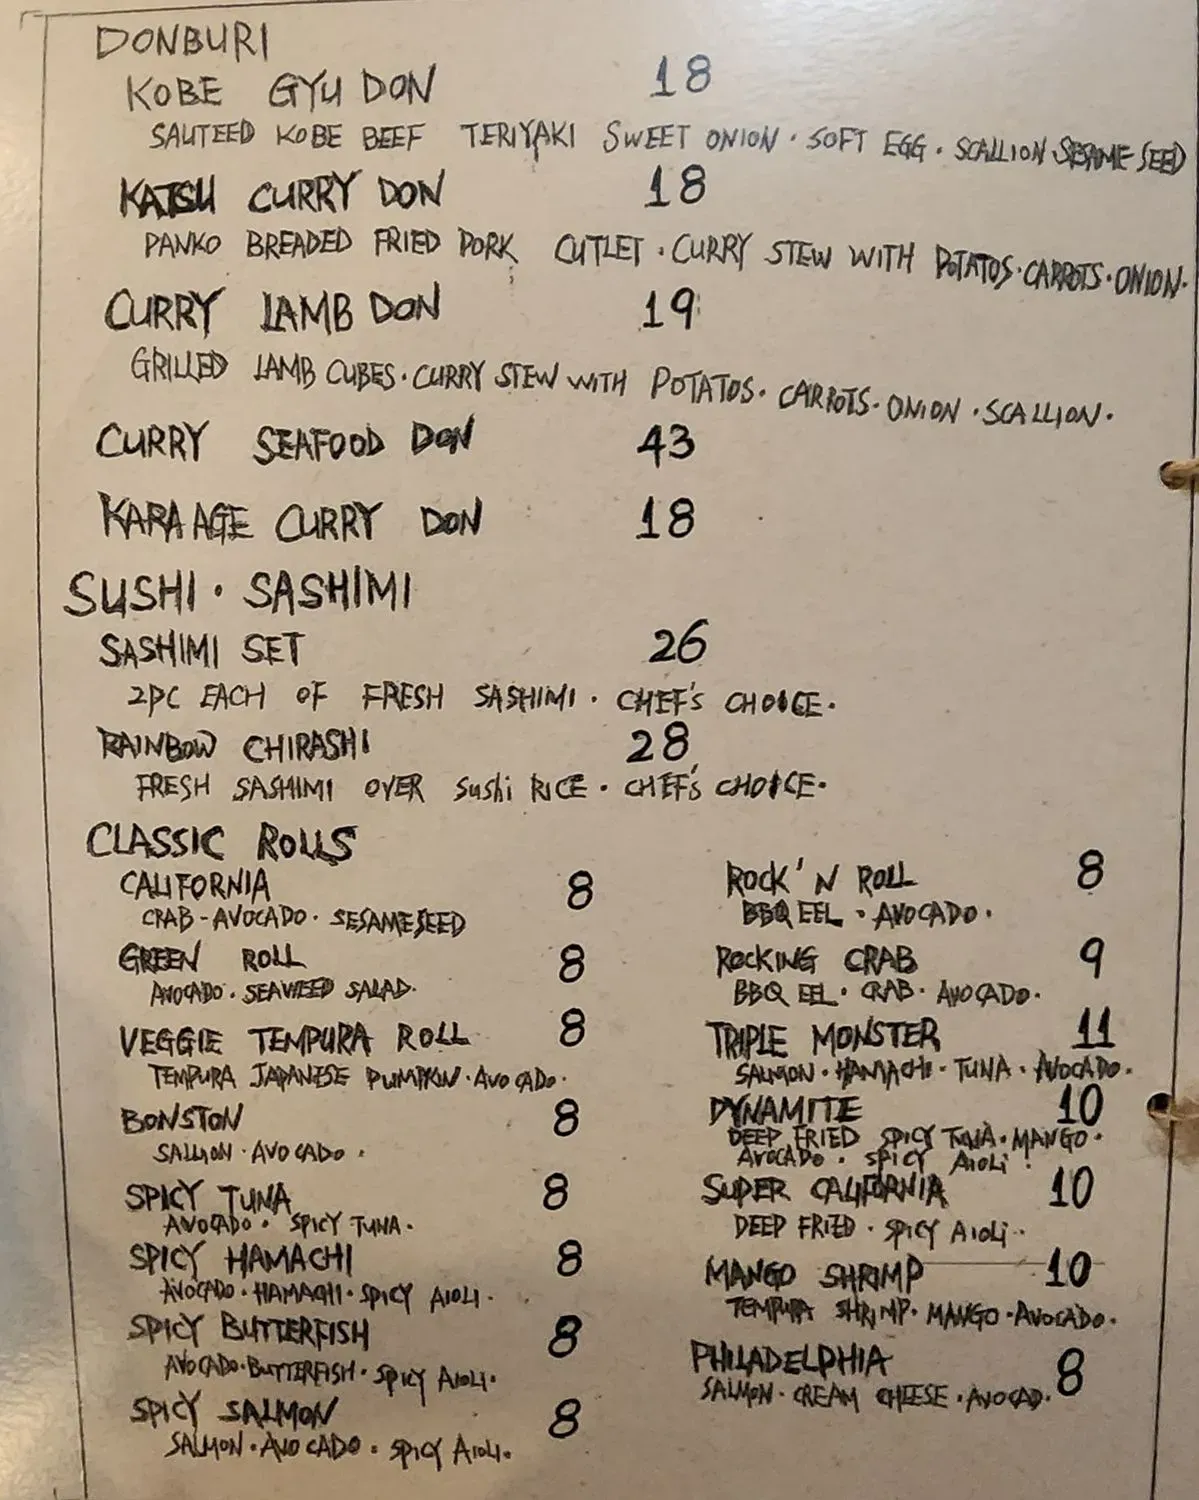 DONBURI
KOBE GYU DON 18
SAUTEED KOBE BEEF TERIYAKI SWEET ONION · SOFT EGG · SCALLION SESAME SEED
KATSU CURRY DON 18
PANKO BREADED FRIED PORK CUTLET · CURRY STEW WITH POTATOS · CARROTS · ONION ·
CURRY LAMB DON 19
GRILLED LAMB CUBES · CURRY STEW WITH POTATOS · CARROTS · ONION · SCALLION ·
CURRY SEAFOOD DON 43
KARAAGE CURRY DON 18
SUSHI · SASHIMI
SASHIMI SET 26
2PC EACH OF FRESH SASHIMI · CHEF'S CHOICE ·
RAINBOW CHIRASHI 28
FRESH SASHIMI OVER SUShi RICE · CHEF'S CHOICE ·
CLASSIC ROLLS
CALIFORNIA 8
CRAB - AVOCADO · SESAME SEED
GREEN ROLL 8
AVOCADO · SEAWEED SALAD ·
VEGGIE TEMPURA ROLL 8
TEMPURA JAPANESE PUMPKIN · AVOCADO ·
BONSTON 8
SALMON · AVOCADO ·
SPICY TUNA 8
AVOCADO · SPICY TUNA ·
SPICY HAMACHI 8
AVOCADO · HAMACHI · SPICY AIOLI ·
SPICY BUTTERFISH 8
AVOCADO · BUTTERFISH · SPICY AIOLI ·
SPICY SALMON 8
SALMON · AVOCADO · SPICY AIOLI ·
ROCK'N ROLL 8
BBQ EEL · AVOCADO ·
ROCKING CRAB 9
BBQ EEL · CRAB · AVOCADO ·
TRIPLE MONSTER 11
SALMON · HAMACHI · TUNA · AVOCADO ·
DYNAMITE 10
DEEP FRIED SPICY TUNA · MANGO ·
AVOCADO · SPICY AIOLI ·
SUPER CALIFORNIA 10
DEEP FRIED · SPICY AIOLI ·
MANGO SHRIMP 10
TEMPURA SHRIMP · MANGO · AVOCADO ·
PHILADELPHIA 8
SALMON · CREAM CHEESE · AVOCAD ·